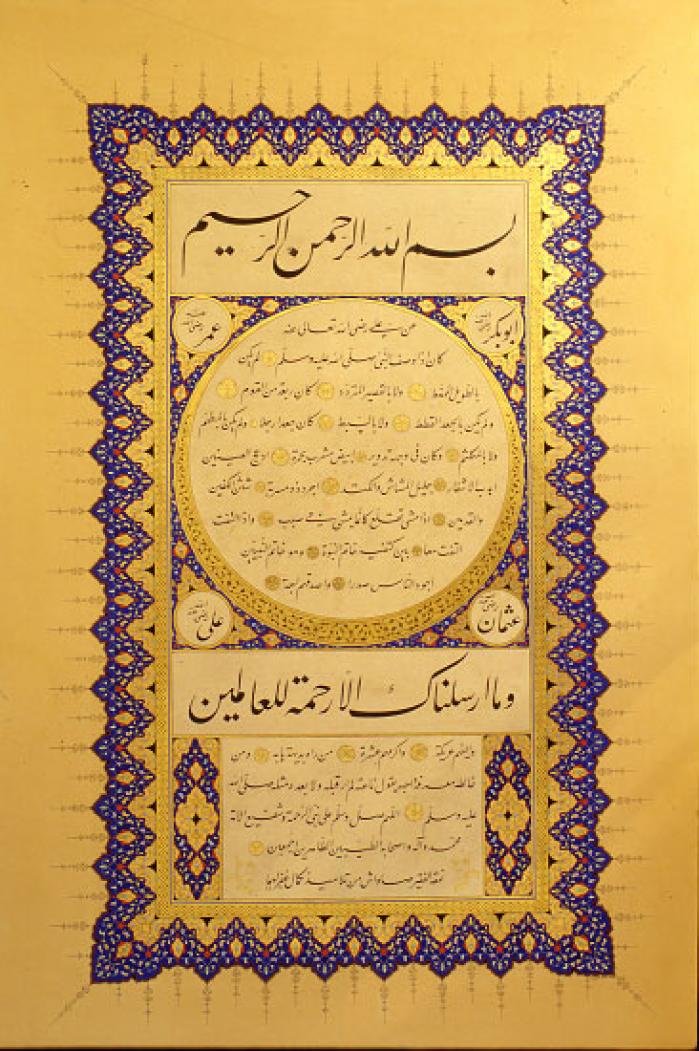 بسم الله الرحمن الرحيم
ابوبكر رضى الله عنه
عمر رضى الله عنه
عن على رضى الله تعالى عنه
كان اذا وصف النبى صلى الله عليه وسلم لم يكن
بالطويل الممغط ولا بالقصير المتردد كان ربعة من القوم
ولم يكن بالجعد القطط ولا بالسبط كان جعدا رجلا ولم يكن بالمطهم
ولا بالمكلثم وكان فى وجهه تدوير ابيض مشرب بحمرة ادعج العينين
اهدب الاشفار جليل المشاش والكتد اجرد ذو مسربة شثن الكفين
والقدمين اذا مشى تقلع كانما يمشى فى صبب واذا التفت
التفت معا بين كتفيه خاتم النبوة وهو خاتم النبيين
اجود الناس صدرا واصدقهم لهجة
عثمان رضى الله عنه
على رضى الله عنه
وما ارسلناك الا رحمة للعالمين
والينهم عريكة واكرمهم عشرة من راه بديهة هابه ومن
خالطه معرفة احبه يقول ناعته لم ار قبله ولا بعده مثله صلى الله
عليه وسلم اللهم صل وسلم على نبى الرحمة وشفيع الامة
محمد وآله واصحابه الطيبين الطاهرين اجمعين
نمقه الفقير من تلاميذ